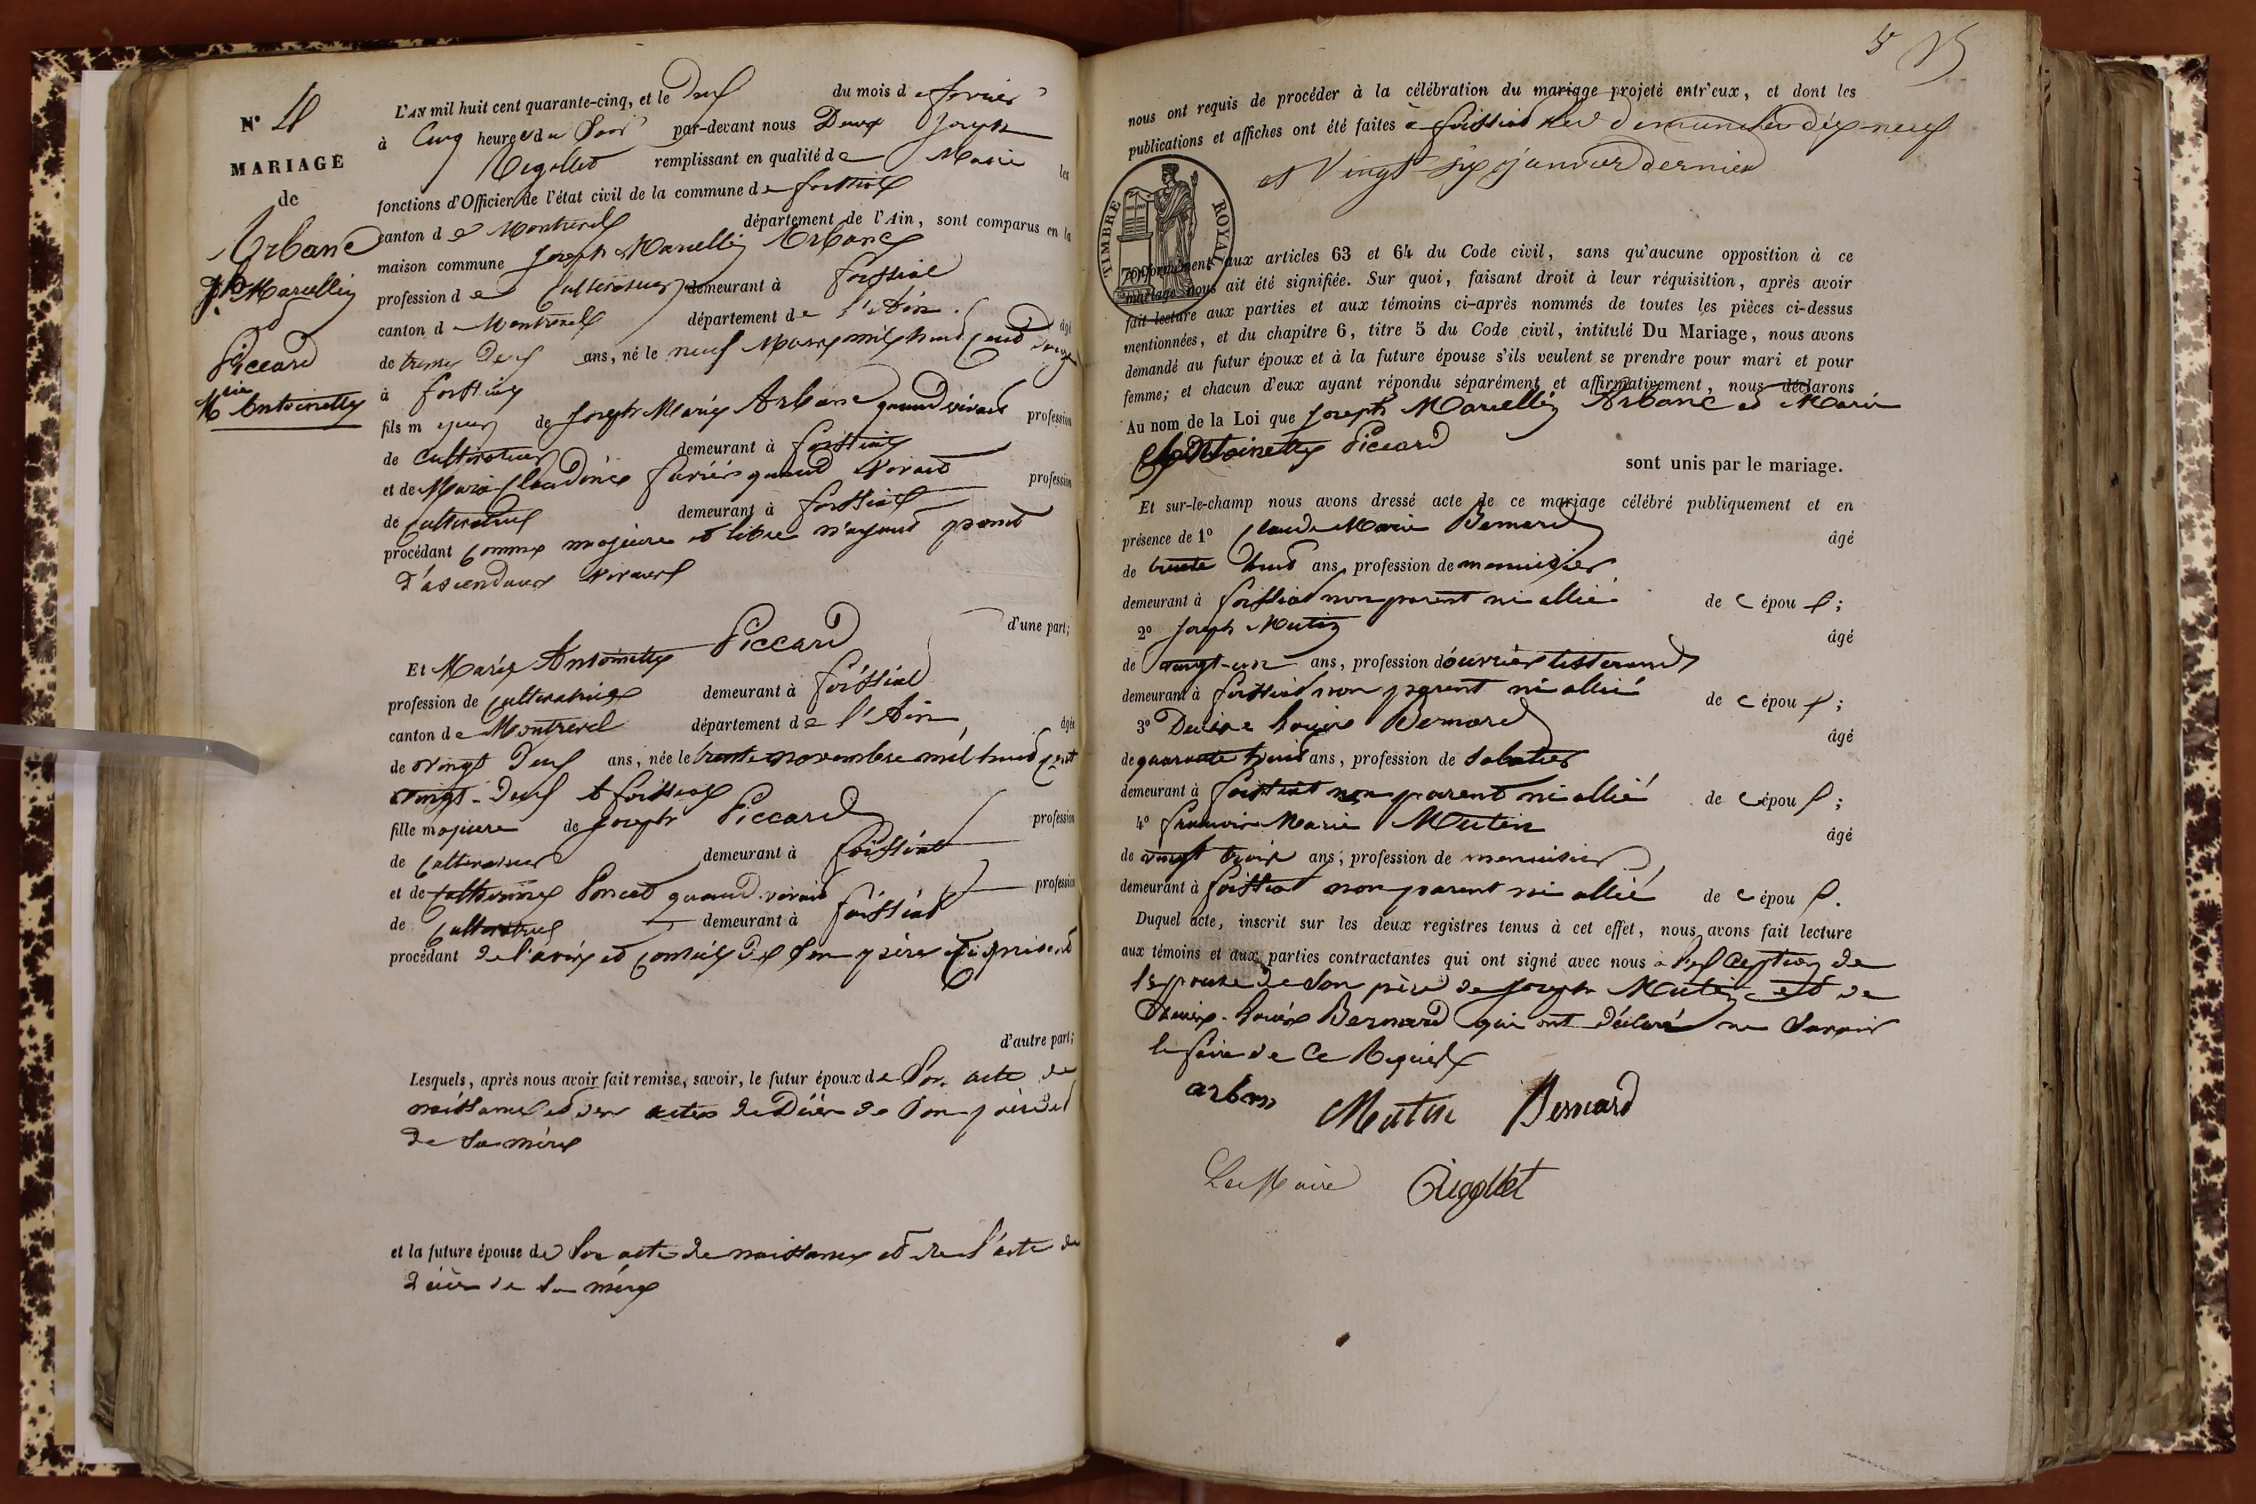 N° 4
MARIAGE
de
Arbanc
Jh Marcellin
Piccard
Mie Antoinette
L'AN mil huit cent quarante-cinq, et le deux du mois de fevrier
à Cinq heures du Soir par-devant nous Joseph
Rigollet remplissant en qualité de Maire les
fonctions d'Officier de l'état civil de la commune de foissiat
canton de Montrevel département de l'Ain, sont comparus en la
maison commune Joseph Marcellin Arbanc
profession de Cultivateur demeurant à foissiat
canton de Montrevel département de l'Ain. âgé
de trente deux ans, né le neuf Mars mil huit Cent douze
à foissiat
fils majeur de Joseph Marie Arbanc quand vivait profession
de Cultivateur demeurant à foissiat
et de Marie Claudine quand vivait profession
de Cultivatrice demeurant à foissiat
procédant Comme majeure et libre n'ayant point
d'ascendans vivans
d'une part;
Et Marie Antoinette Piccard
profession de Cultivatrice demeurant à foissiat
canton de Montrevel département de l'Ain âgée
de vingt deux ans, née le trente novembre mil huit Cent
vingt-deux à foissiat
fille majeure de Joseph Piccard profession
de Cultivateur demeurant à foissiat
et de Catherine Poncet quand vivait profession
de Cultivatrice demeurant à foissiat
procédant de l'avis et Conseil de Son père ici présent
d'autre part;
Lesquels, après nous avoir fait remise, savoir, le futur époux de Son acte de
naissance et des actes de Décès de Son père et
de Sa mère
et la future épouse de Son acte de naissance et de l'acte de
décès de Sa mère
5
nous ont requis de procéder à la célébration du mariage projeté entr'eux, et dont les
publications et affiches ont été faites à foissiat les dimanches dix-neuf
et Vingt-six janvier dernier
TIMBRE ROYAL
70
conformément aux articles 63 et 64 du Code civil, sans qu'aucune opposition à ce
mariage nous ait été signifiée. Sur quoi, faisant droit à leur réquisition, après avoir
fait lecture aux parties et aux témoins ci-après nommés de toutes les pièces ci-dessus
mentionnées, et du chapitre 6, titre 5 du Code civil, intitulé Du Mariage, nous avons
demandé au futur époux et à la future épouse s'ils veulent se prendre pour mari et pour
femme; et chacun d'eux ayant répondu séparément et affirmativement, nous déclarons
Au nom de la Loi que Joseph Marcellin Arbanc et Marie
Antoinette Piccard
sont unis par le mariage.
Et sur-le-champ nous avons dressé acte de ce mariage célébré publiquement et en
présence de 1° Claude Marie Bernard âgé
de trente huit ans, profession de menuisier
demeurant à foissiat non parent ni allié de c épou x;
2° Joseph Mutin âgé
de vingt-un ans, profession d'ouvrier tisserand
demeurant à foissiat non parent ni allié de c épou x;
3° Denis Louis Bernard âgé
de quarante trois ans, profession de Sabotier
demeurant à foissiat non parent ni allié de c épou x;
4° francois Marie Mutin âgé
de vingt trois ans, profession de menuisier
demeurant à foissiat non parent ni allié de c épou x.
Duquel acte, inscrit sur les deux registres tenus à cet effet, nous avons fait lecture
aux témoins et aux parties contractantes qui ont signé avec nous à l'exception de
l'epouse de Son père de Joseph Mutin et de
Denis-Louis Bernard qui ont déclaré ne Savoir
le faire de Ce Requis
arban Mutin Bernard
Le Maire Rigollet